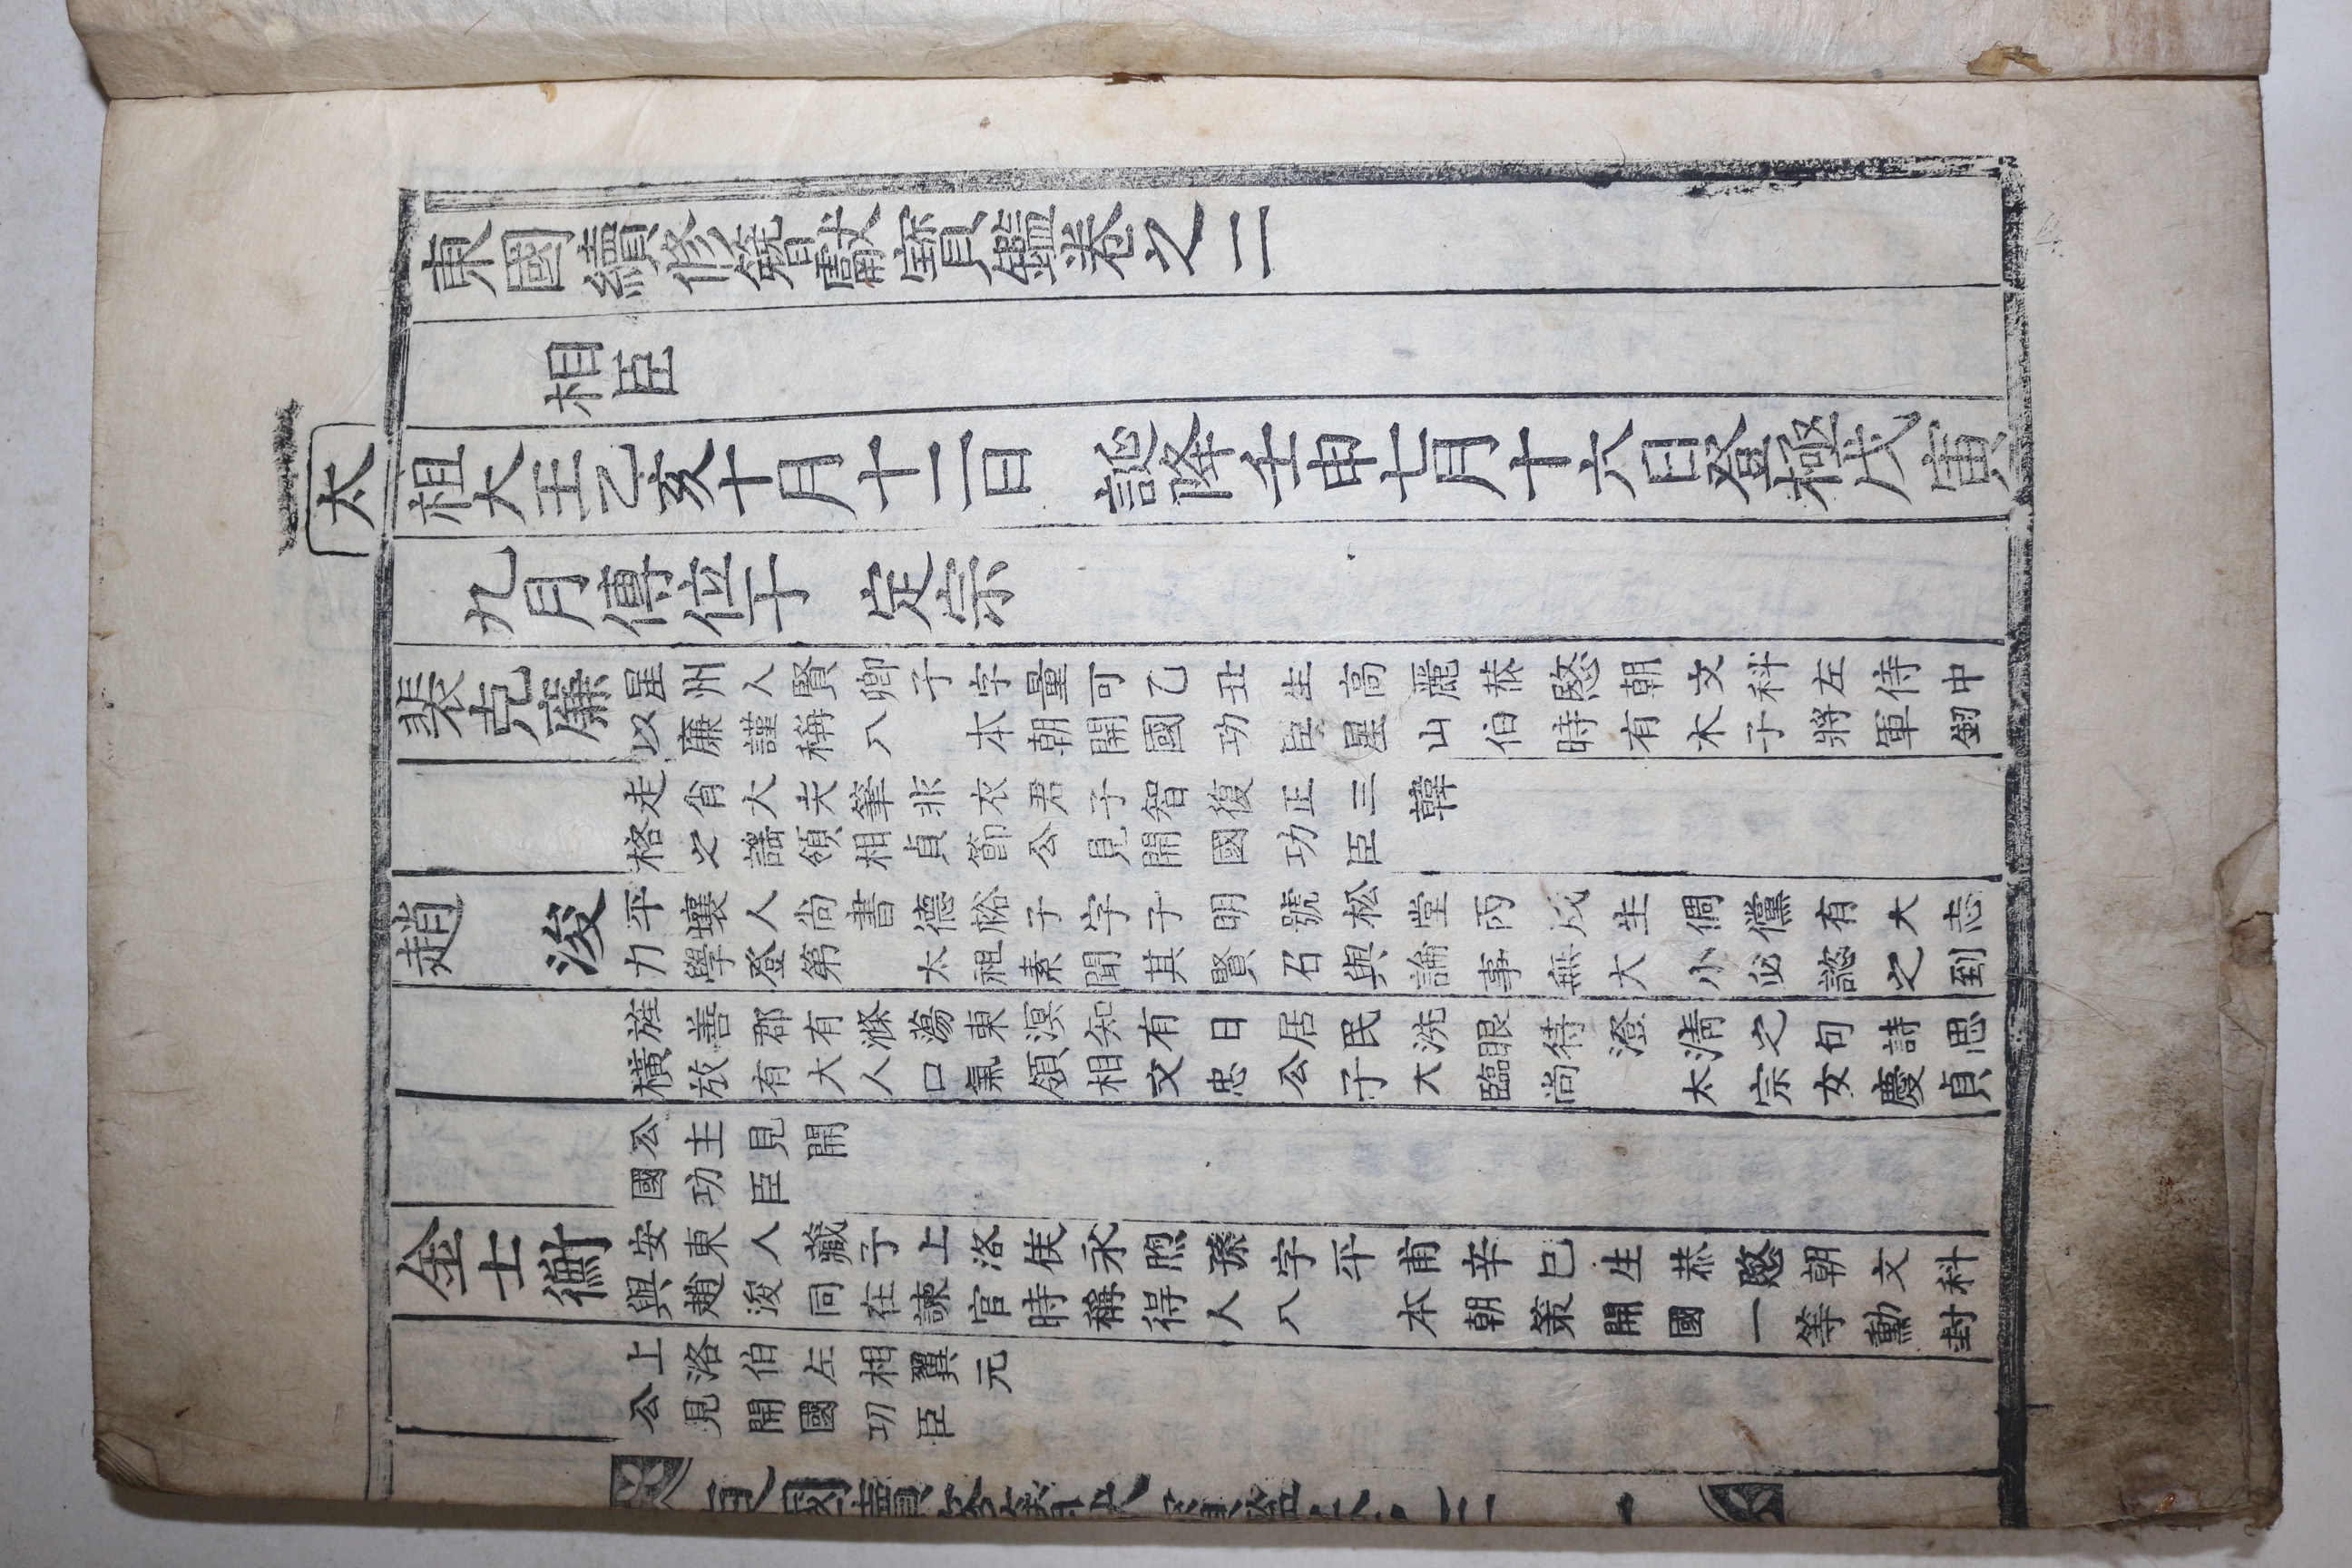 東國續修簪獻寶鑑卷之二
相臣
太祖大王乙亥十月十二日 誕降壬申七月十六日登極戊寅
九月傳位于 定宗
裴克廉
星州人賢卿子字量可乙丑生高麗恭愍朝文科左侍中
以廉謹稱入 本朝開國功臣星山伯時有木子將軍釰
走肖大夫筆非衣君子智復正三韓
格之謠領相貞節公見開國功臣
趙 浚
平壤人尚書德裕子字子明號松堂丙戌生倜儻有大志
力學登第 太祖素聞其賢召與論事無大小必諮之到
旌善郡有滌蕩東溟知有日居民洗眼待澄清之句詩思
橫放有大人口氣領相文忠公子大臨尚 太宗女慶貞
公主見開
國功臣
金士衡
安東人藏子上洛侯永煦孫字平甫辛巳生恭愍朝文科
與趙浚同在諫官時稱得人入 本朝策開國一等勳封
上洛伯左相翼元
公見開國功臣
東國續修簪獻寶鑑卷之二 一